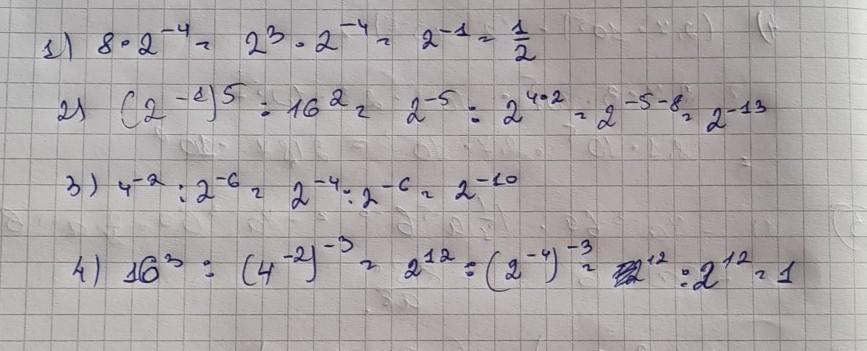 1) 8 · 2⁻⁴ = 2³ · 2⁻⁴ = 2⁻¹ = 1/2
2) (2⁻¹)⁵ : 16² = 2⁻⁵ : 2⁴·² = 2⁻⁵⁻⁸ = 2⁻¹³
3) 4⁻² : 2⁻⁶ = 2⁻⁴ : 2⁻⁶ = 2⁻¹⁰
4) 16³ : (4⁻²)⁻³ = 2¹² : (2⁻⁴)⁻³ = 2¹² : 2¹² = 1